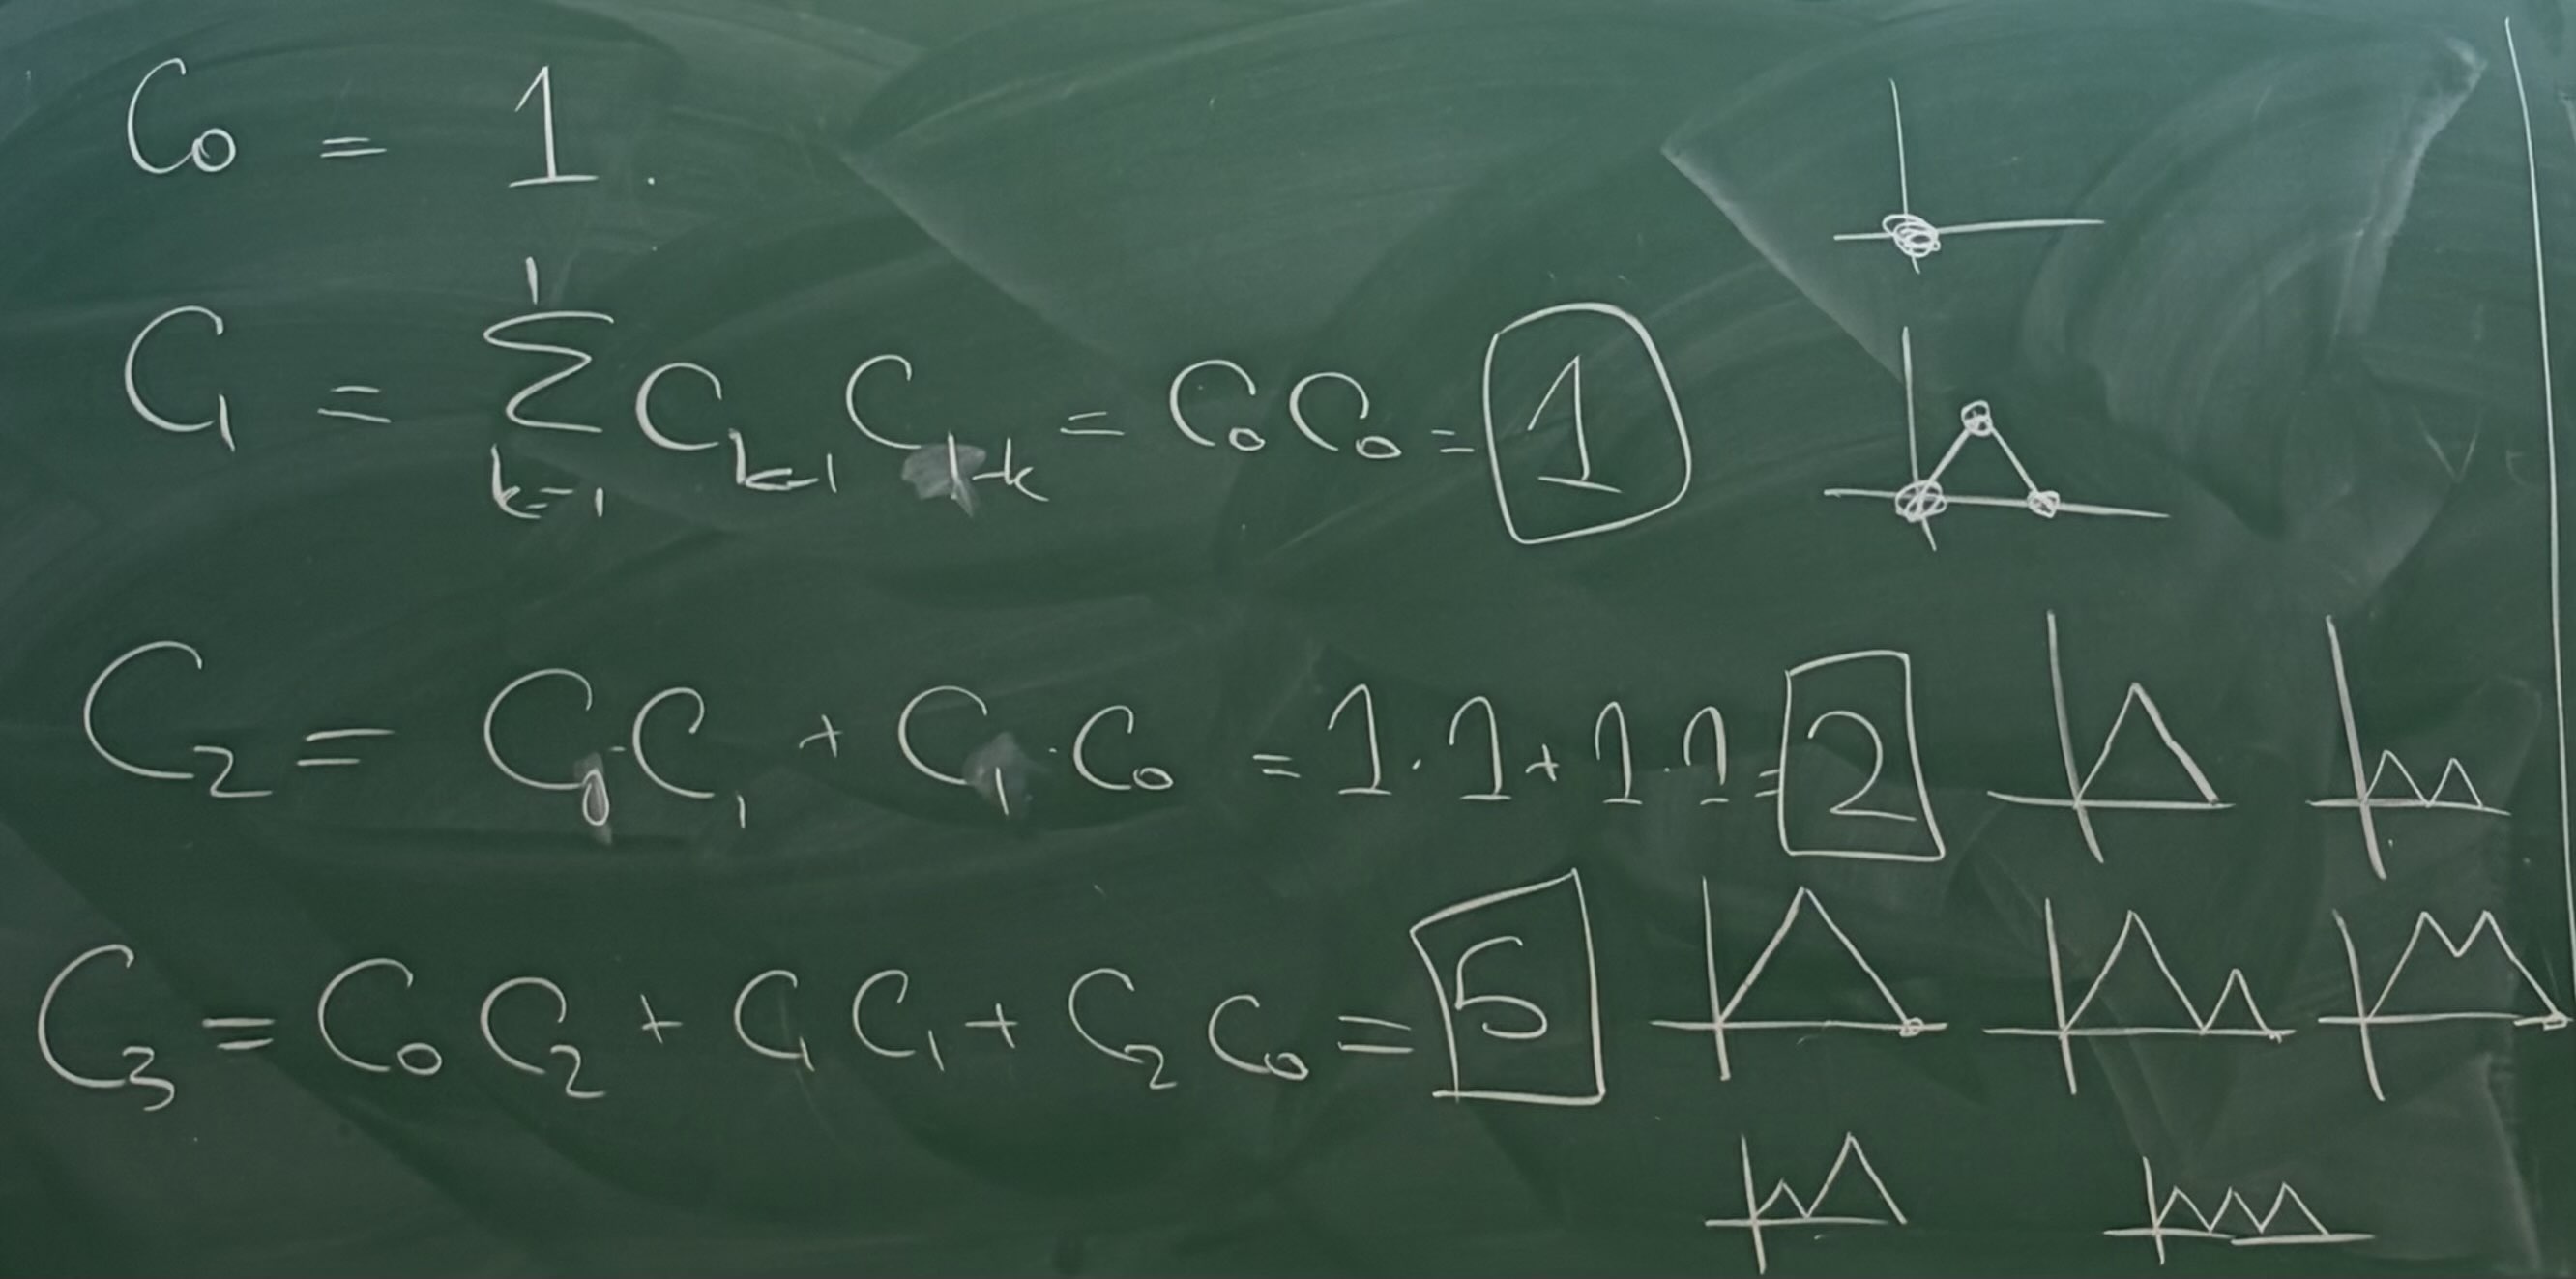 C₀ = 1.
C₁ = ∑_{k=1}^{1} C_{k-1} C_{1-k} = C₀ C₀ = 1
C₂ = C₀·C₁ + C₁·C₀ = 1·1+1·1 = 2
C₃ = C₀ C₂ + C₁ C₁ + C₂ C₀ = 5